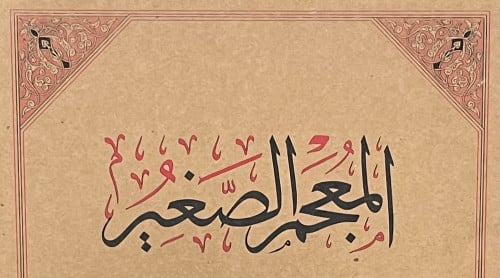 المعجم الصغير